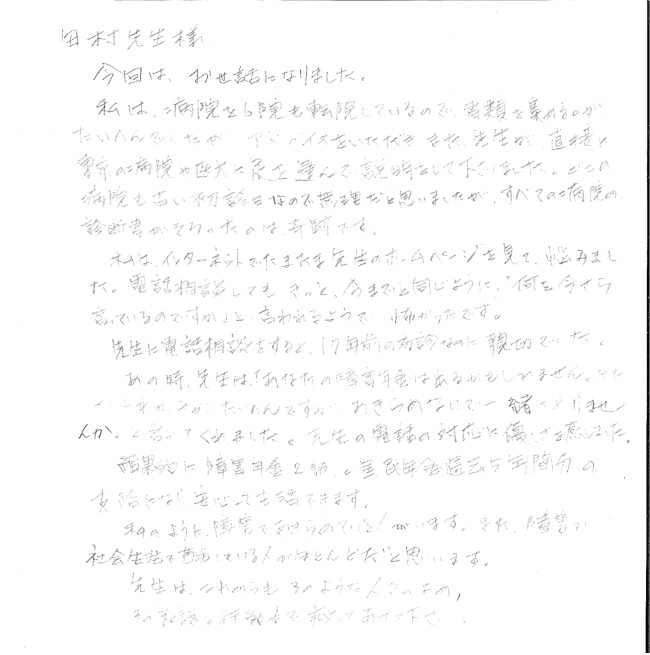 田村先生様
今回は、お世話になりました。
私は、病院を6院も転院しているので、書類を集めるのが
たいへんでしたが、アドバイスをいただき また、先生が、直接
病院や医大に足を運んで説明をして下さいました。どこの
病院も古い初診日なので無理だと思いましたが、すべての病院の
診断書がそろったのは、奇跡です。
私は、インターネットでたまたま先生のホームページを見て、悩みまし
た。電話相談しても きっと、今までと同じように、「何を今さら
言っているのですか」と 言われるようで 怖かったです。
先生に電話相談をすると、17年前の初診なのに 親切でした。
あの時、先生は、「あなたの障害年金は出るかもしれません。ただ
たいへんですが、あきらめないで一緒にやりませ
んか」と言ってくれました。先生の電話の対応に優しさを感じました。
結果的に 障害年金2級、と 過去5年間分の
支給になり 安心して生活できます。
私のように、障害であきらめている人がいます。また、障害で
社会生活で苦労している人がほとんどだと思います。
先生は、これからも そのような人たちのため、
その知識と行動力で 救ってあげて下さい